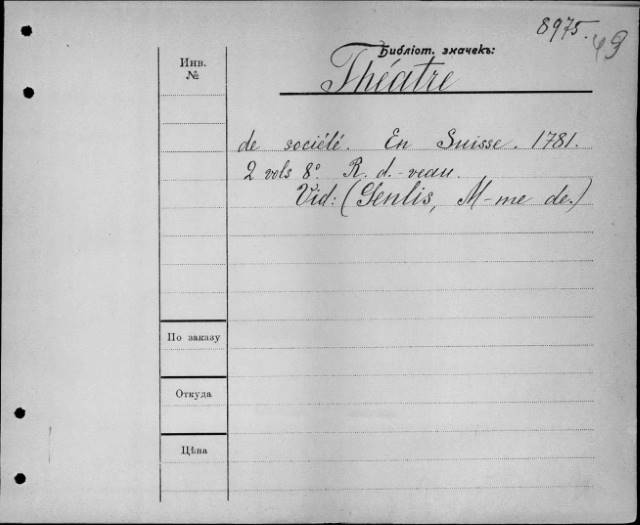 8975.
49
Библіот. значекъ:
Инв.
№
Théatre
de société. En Suisse. 1781.
2 vols 8° R. d.-veau.
Vid: (Genlis, M-me de.)
По заказу
Откуда
Цѣна